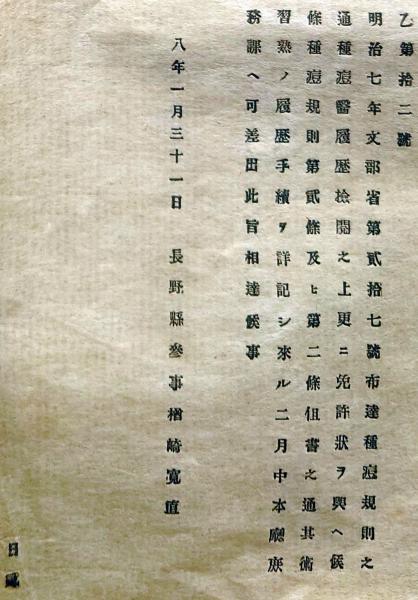 乙第拾二號
明治七年文部省第貳拾七號布達種痘規則之
通種痘醫履歴檢閲之上更ニ免許狀ヲ與ヘ候
條種痘規則第貳條及ヒ第二條但書之通其術
習熟ノ履歴手續ヲ詳記シ來ル二月中本廳庶
務課ヘ可差出此旨相達候事
八年一月三十一日 長野縣參事楢崎寬直
日